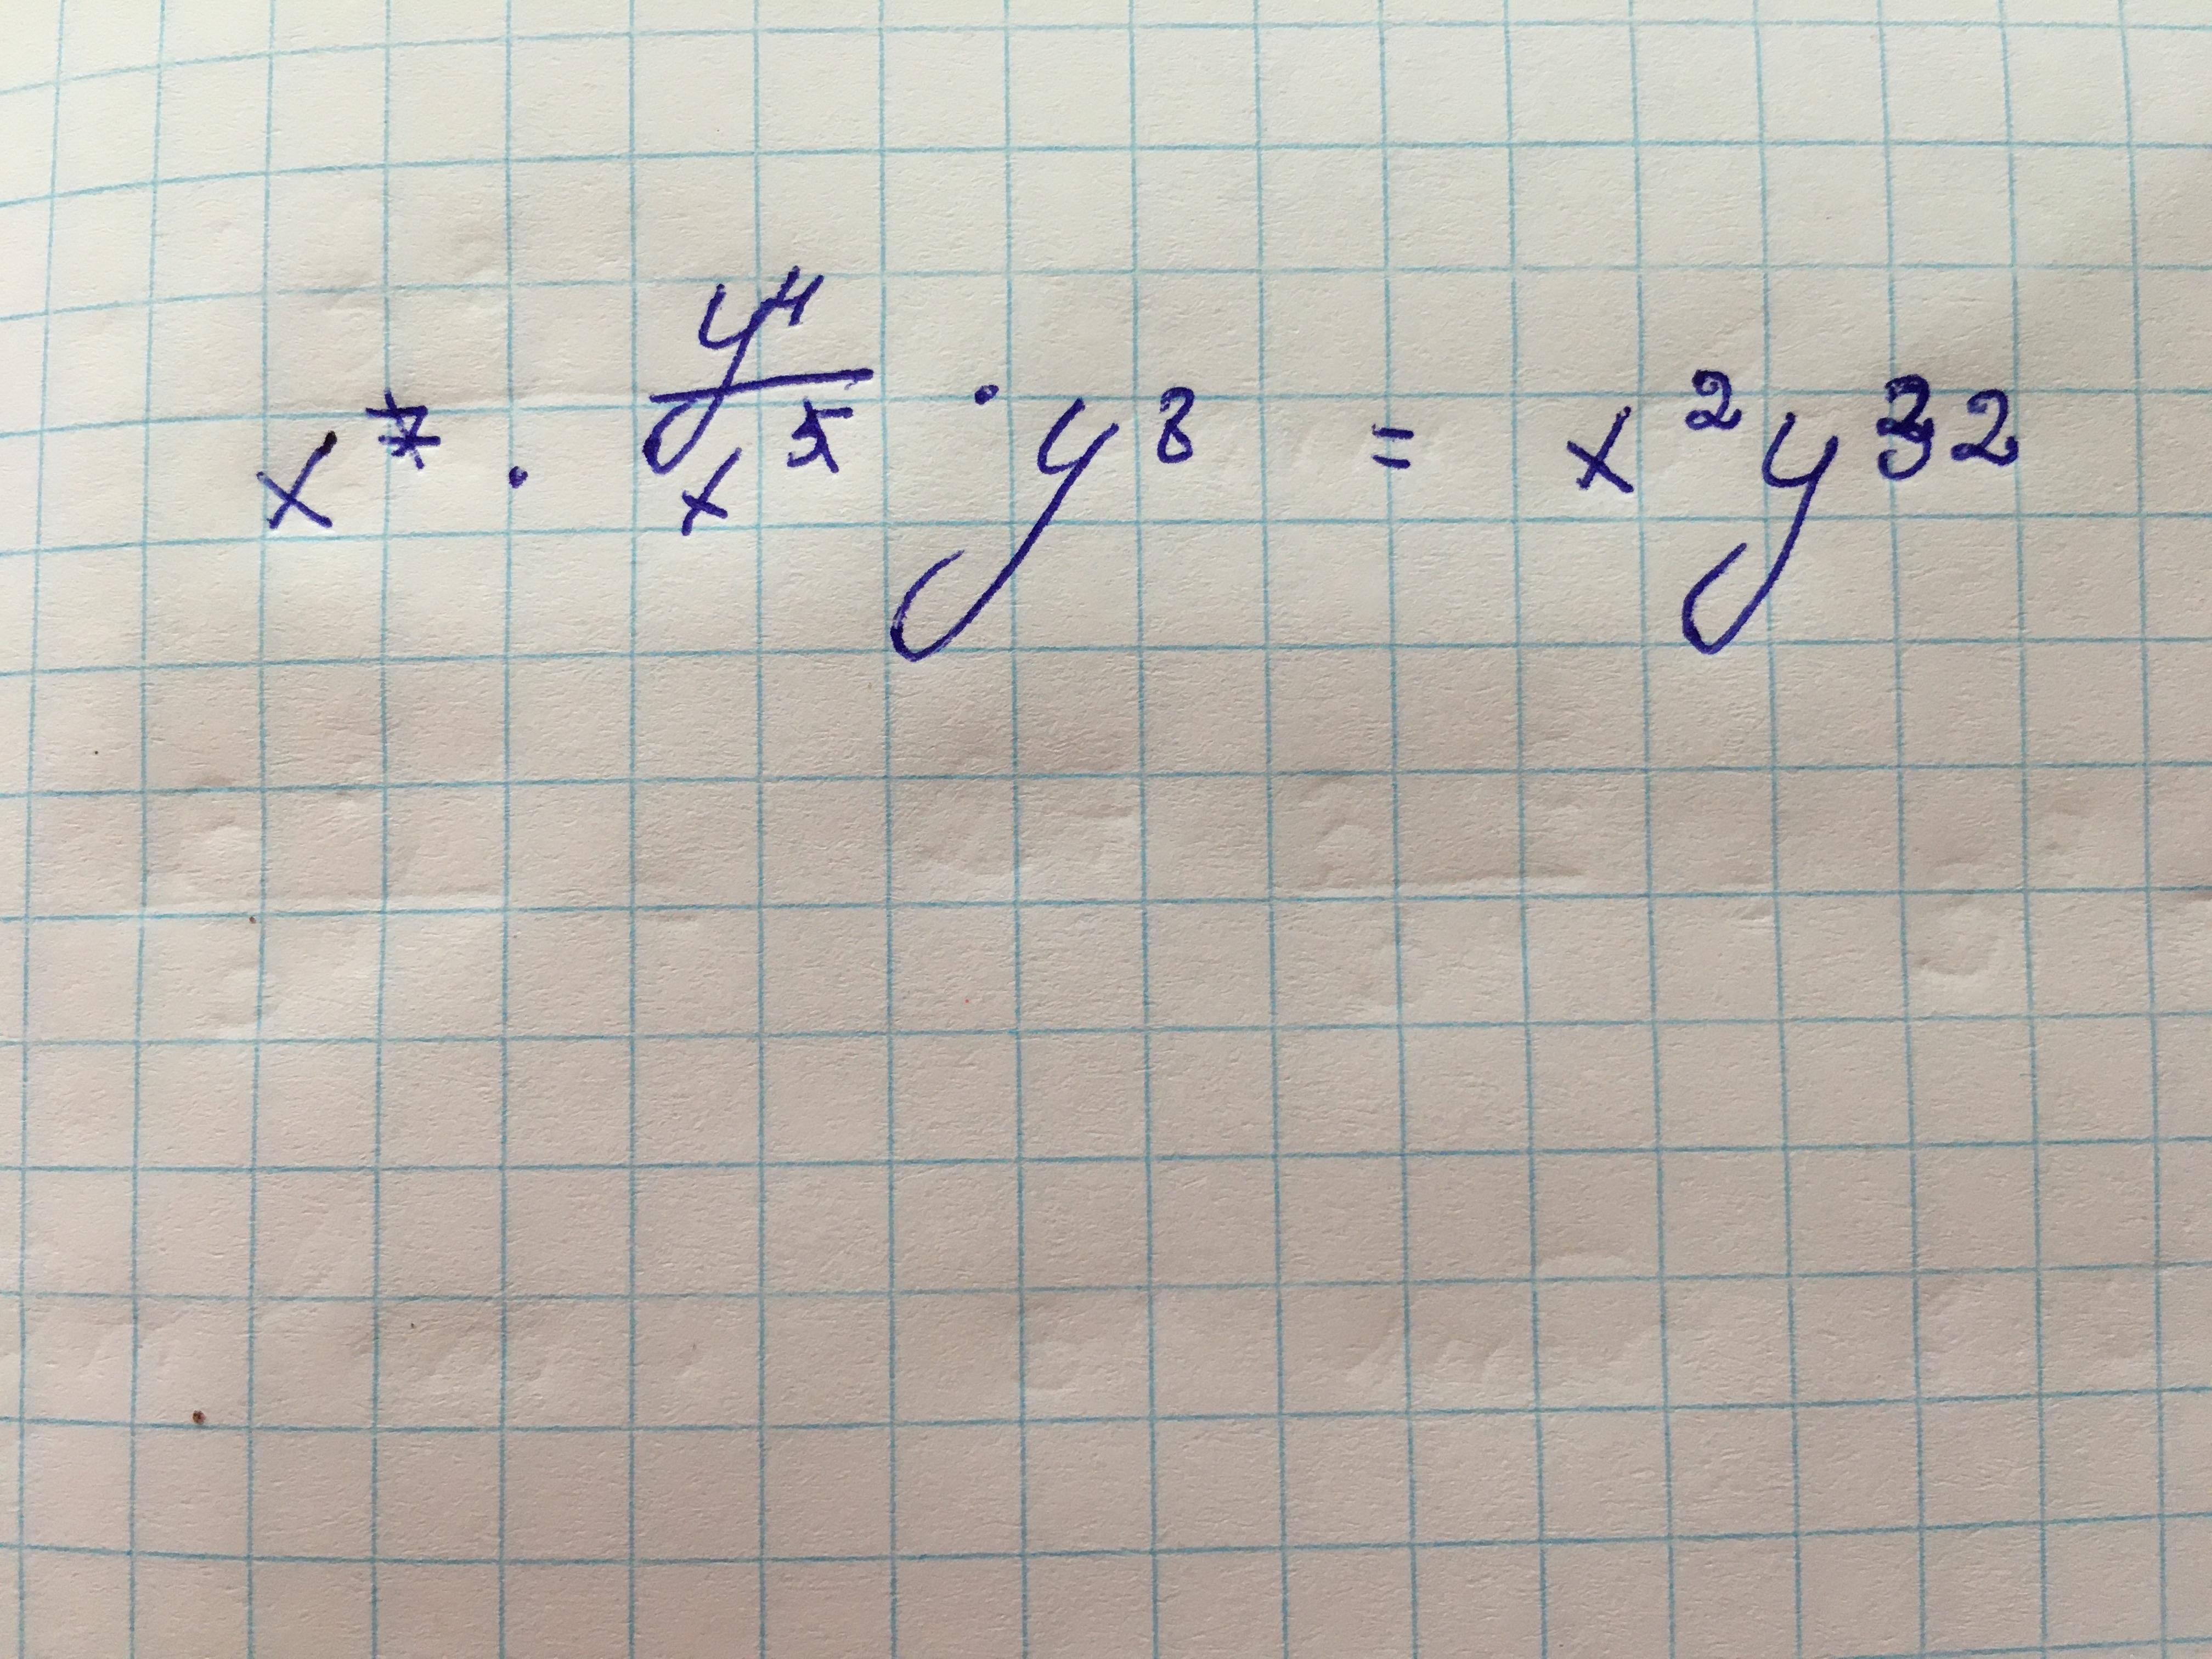 x⁷ · y⁴/x⁵ · y⁸ = x²y³²